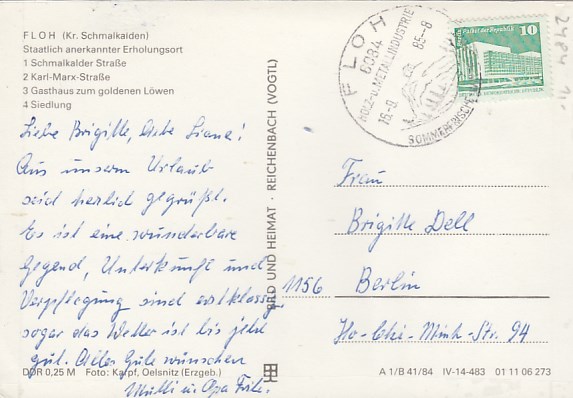 FLOH (Kr. Schmalkalden)
Staatlich anerkannter Erholungsort
1 Schmalkalder Straße
2 Karl-Marx-Straße
3 Gasthaus zum goldenen Löwen
4 Siedlung
Liebe Brigitte, liebe Liane!
Aus unserm Urlaub
seid herzlich gegrüßt.
Es ist eine wunderbare
Gegend, Unterkunft und
Verpflegung sind erstklassig
sogar das Wetter ist bis jetzt
gut. Alles Gute wünschen
Mutti u. Opa
DDR 0,25 M Foto: Karpf, Oelsnitz (Erzgeb.)
BILD UND HEIMAT · REICHENBACH (VOGTL)
FLOH
6084
HOLZ-U. METALLINDUSTRIE
18.-9. 85-8
SOMMERFRISCHE
Palast der Republik
10
2484
Frau
Brigitte Dell
1156 Berlin
Ho-Chi-Minh-Str. 94
A 1/B 41/84 IV-14-483 01 11 06 273